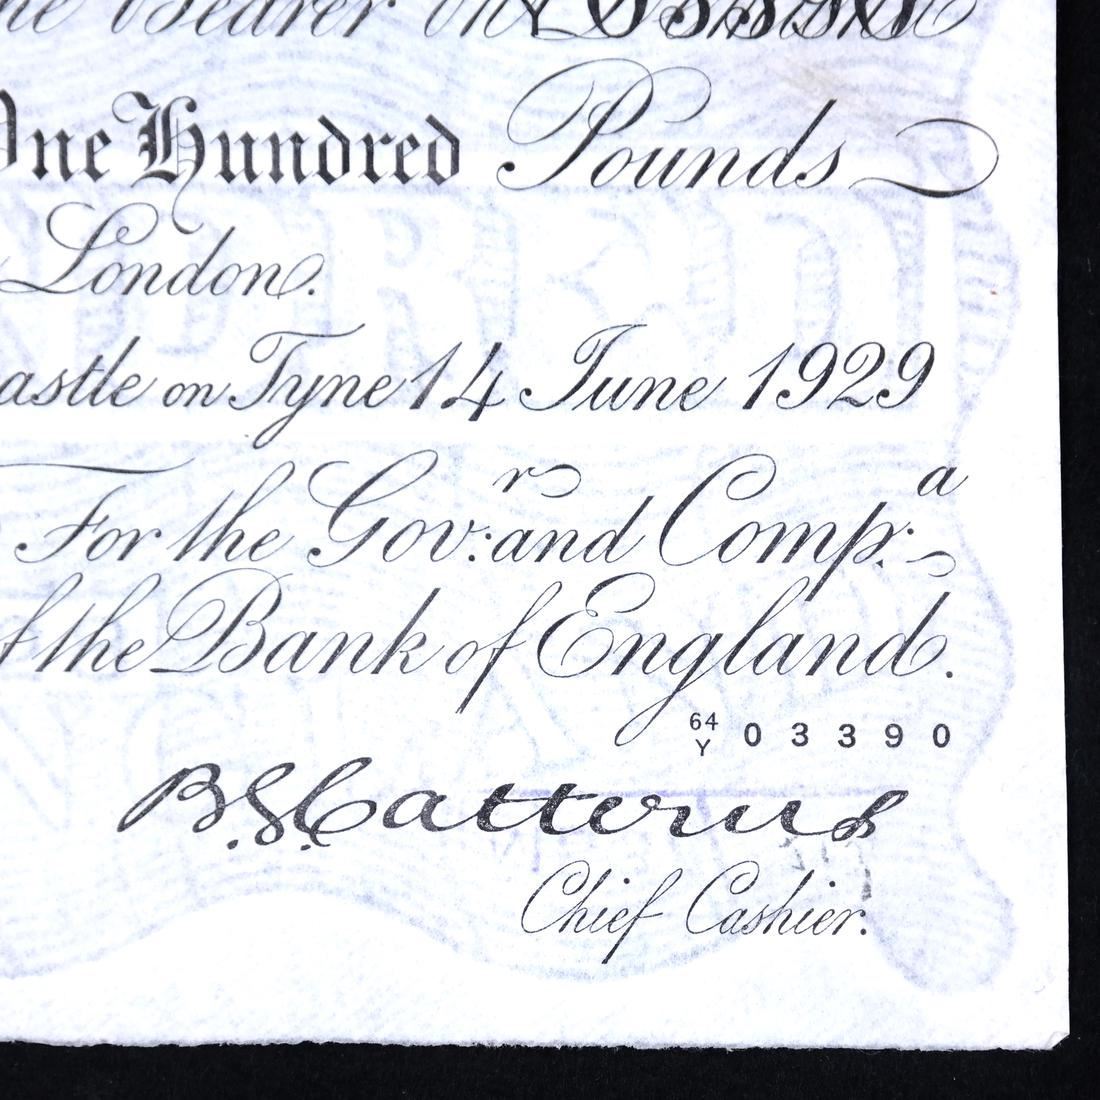 he Bearer on
One Hundred Pounds
London.
astle on Tyne 14 June 1929
For the Gov:r and Comp:a
of the Bank of England.
64 Y 03390
B.G. Catterns
Chief Cashier.